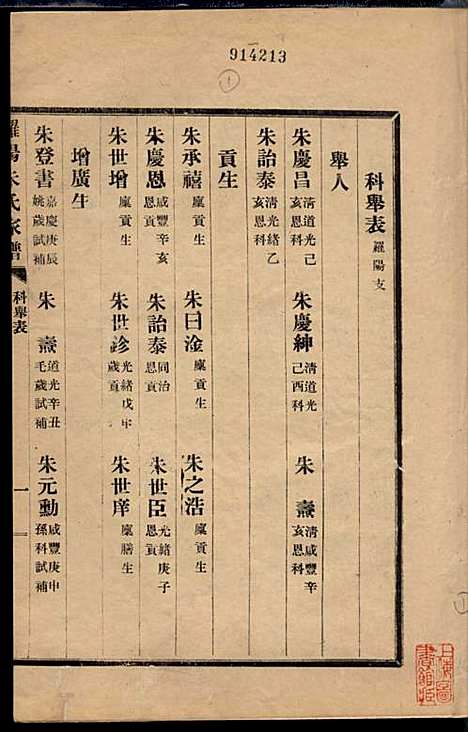 914213
1
科舉表 羅陽支
舉人
朱慶昌 清道光己亥恩科 朱慶紳 清道光己酉科 朱燾 清咸豐辛亥恩科
朱詒泰 清光緒乙亥恩科
貢生
朱承禧 廩貢生 朱曰淦 廩貢生 朱之浩 廩貢生
朱慶恩 咸豐辛亥恩貢 朱詒泰 同治恩貢 朱世臣 光緒庚子恩貢
朱世增 廩貢生 朱世診 光緒戊申歲貢 朱世庠 廩膳生
增廣生
朱登書 嘉慶庚辰姚歲試補 朱燾 道光辛丑毛歲試補 朱元勳 咸豐庚申孫科試補
羅陽朱氏家譜 科舉表 一
上海圖書館藏